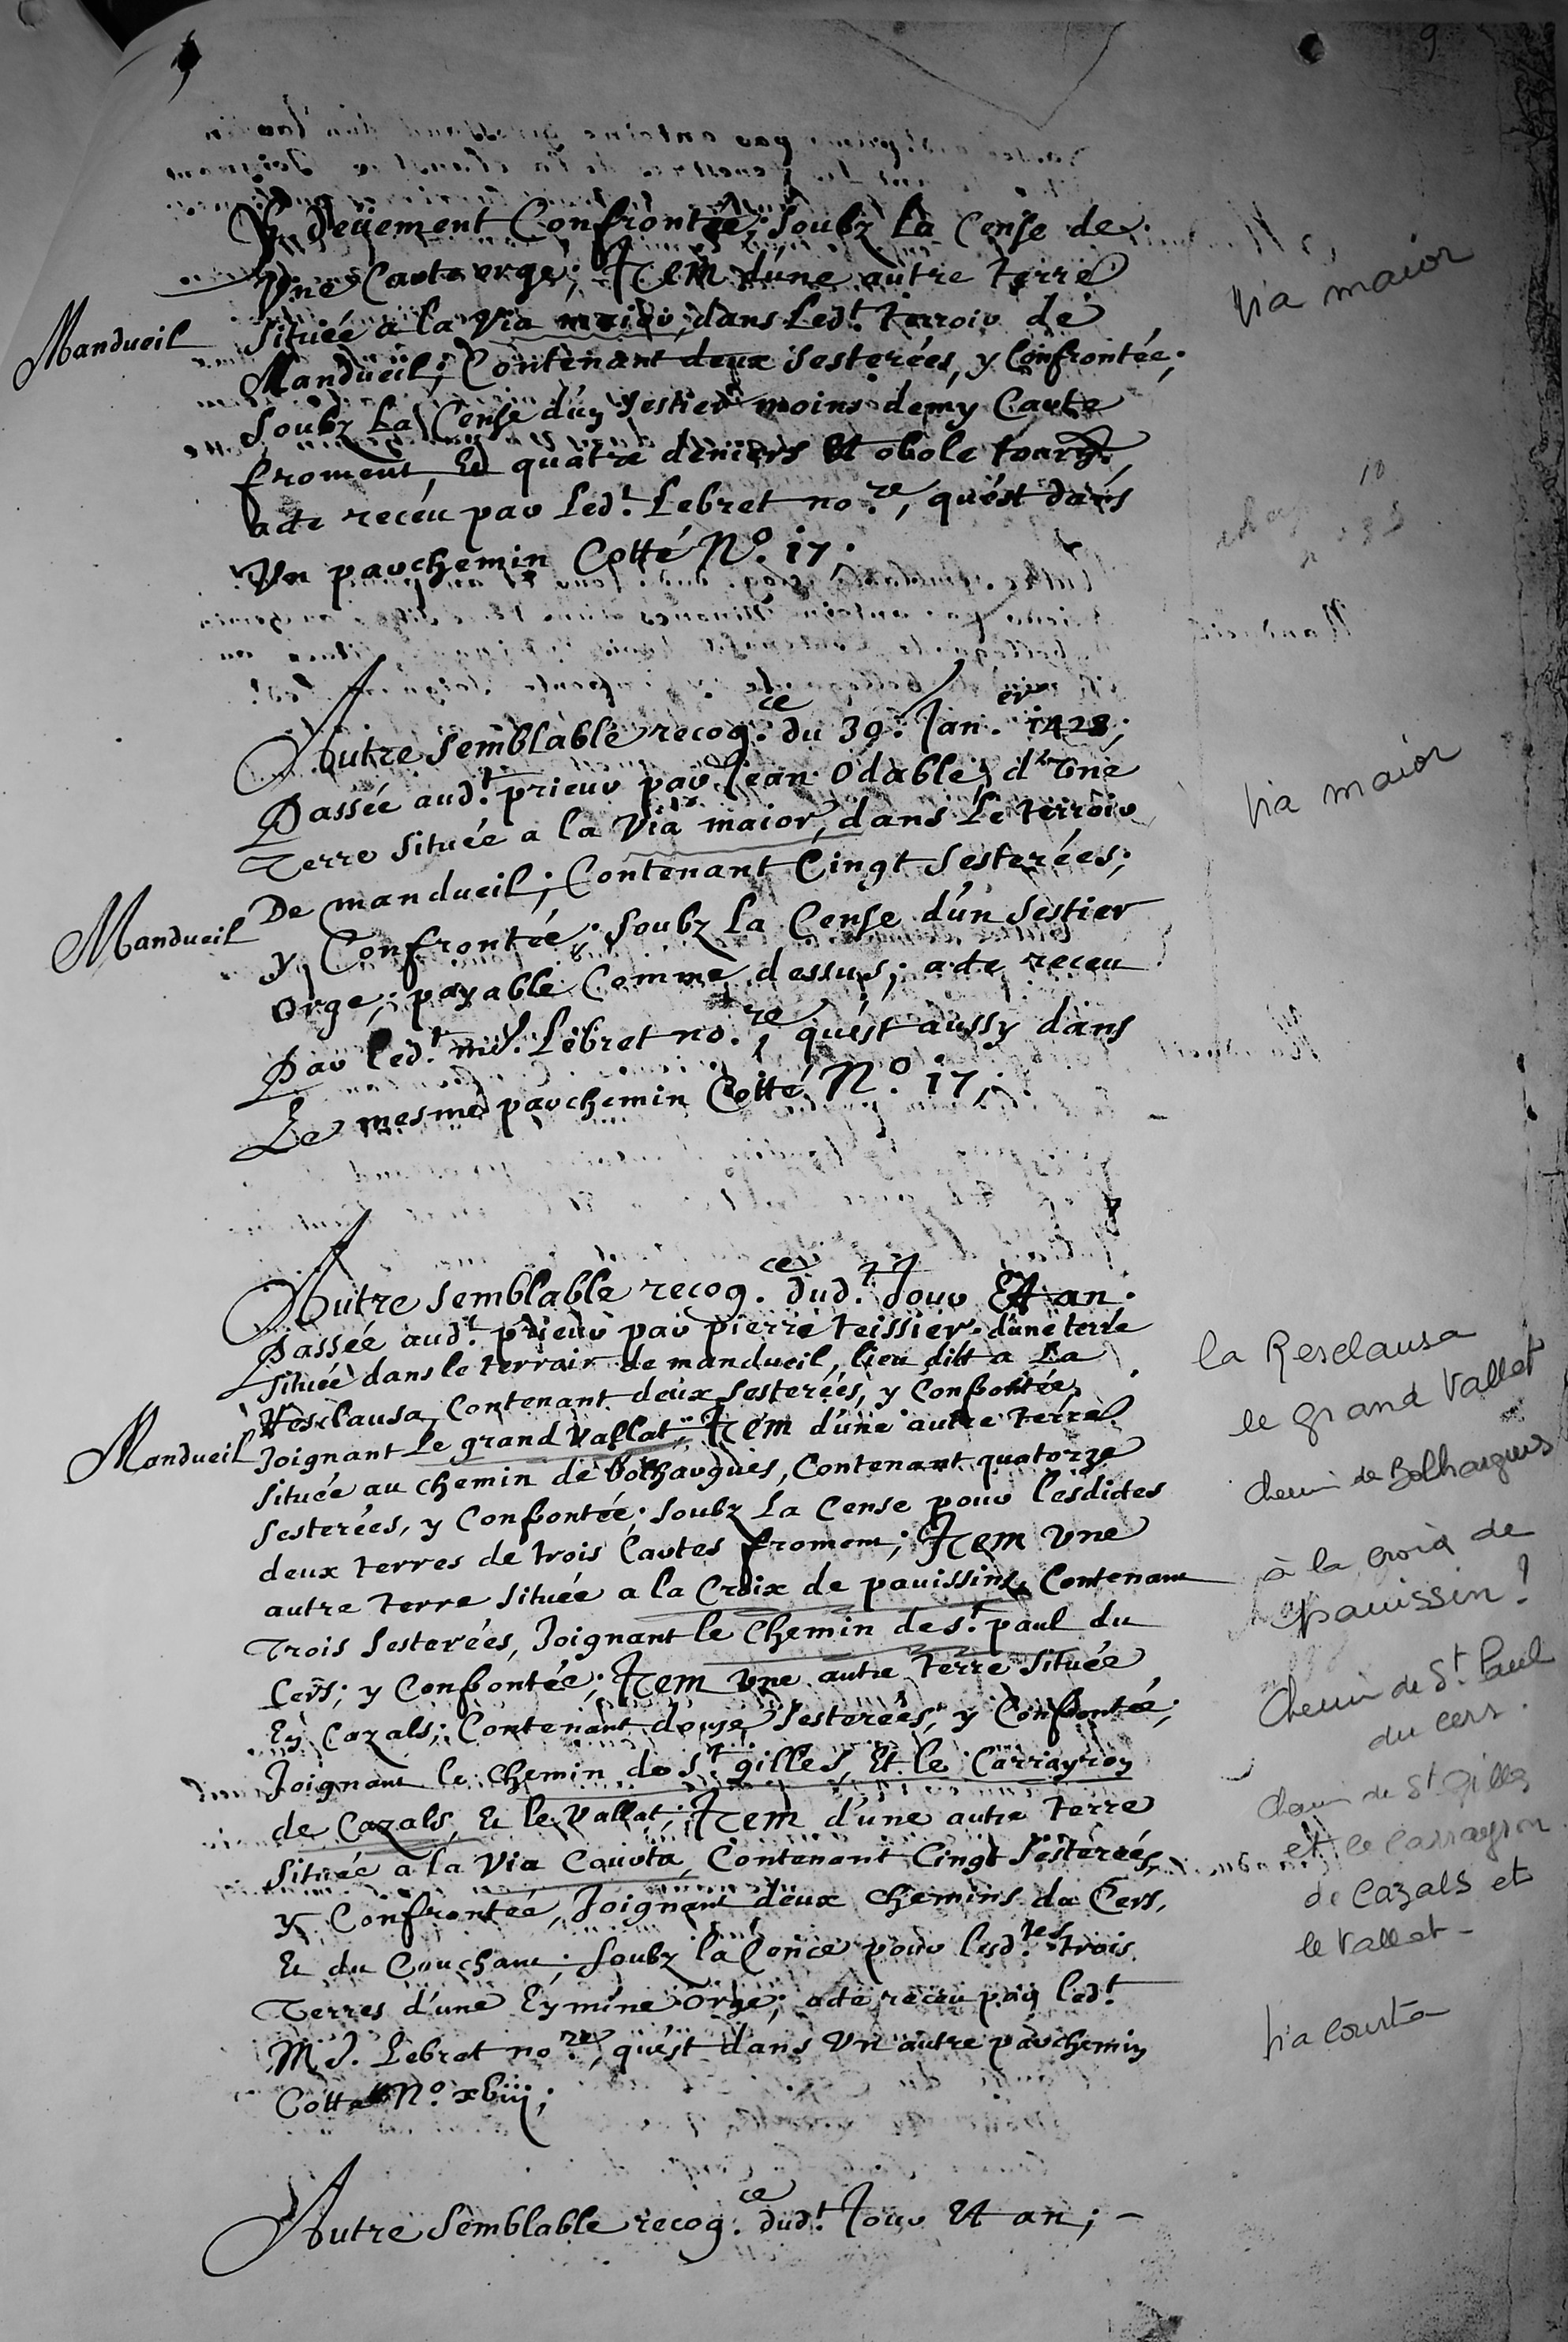 9
& deüement Confrontée; soubz La Cense de
Vne Carte orge; Item d'une autre terre
via maior
Mandueil
située a la Via maior, dans Led.t terroir de
Mandüeil; Contenant deux sesterées, y Confrontée;
soubz La Cense d'un sestier moins demy Carte
froment, et quatre deniers et obole tourn.
acte receu par Led.t Lebret no.re, qu'est dans
Un parchemin Cotté N.o 17;
Autre semblable recog.ce du 30. Jan.er 1428;
Passée aud.t prieur par Jean Odable, d'Vne
via maior
Terre située a la Via maior, dans Le terroir
De mandueil; Contenant Cinqt sesterées;
Mandueil
y Confrontée; soubz La Cense d'un sestier
orge; payable Comme dessus; acte receu
Par Led.t m.e J. Lebret no.re, qu'est aussy dans
Le mesme parchemin Cotté N.o 17;
Autre semblable recog.ce dud.t Jour Et an.
Passée aud.t prieur par pierre teissier d'une terre
la Resclausa
située dans le terrair de mandueil, lieu ditt a La
Resclausa, Contenant deux sesterées, y Confrontée,
le grand Vallat
Mandueil
Joignant le grand Vallat; Item d'une autre terre
située au chemin de bolhargues, Contenant quatorze
chemin de Bolhargues
sesterées, y Confrontée; soubz La Cense pour lesdictes
deux terres de trois Cartes froment; Item Vne
à la croix de
autre terre située a la Croix de pauissins, Contenant
pauissin!
Trois sesterées, Joignant le Chemin de s.t paul du
Cers; y Confrontée; Item Vne autre terre située
Chemin de St Paul
du cers.
En Cazals; Contenant douze sesterées, y Confrontée;
Joignant le chemin de s.t gilles, Et le Carrayron
chemin de St Gilles
de Cazals, Et le Vallat; Item d'une autre terre
et le carrayron
située a la Via Courta, Contenant Cinqt sesterées,
de Cazals et
y Confrontée, Joignant deux chemins du Cers,
le Vallat -
Et du Couchant; soubz la Cence pour lesd.tes trois
Terres d'une Eymine orge; acte receu par led.t
via courta
M.e J. Lebret no.re, qu'est dans Vn autre parchemin
Cotté N.o xviij;
Autre semblable recog.ce dud.t Jour Et an; -